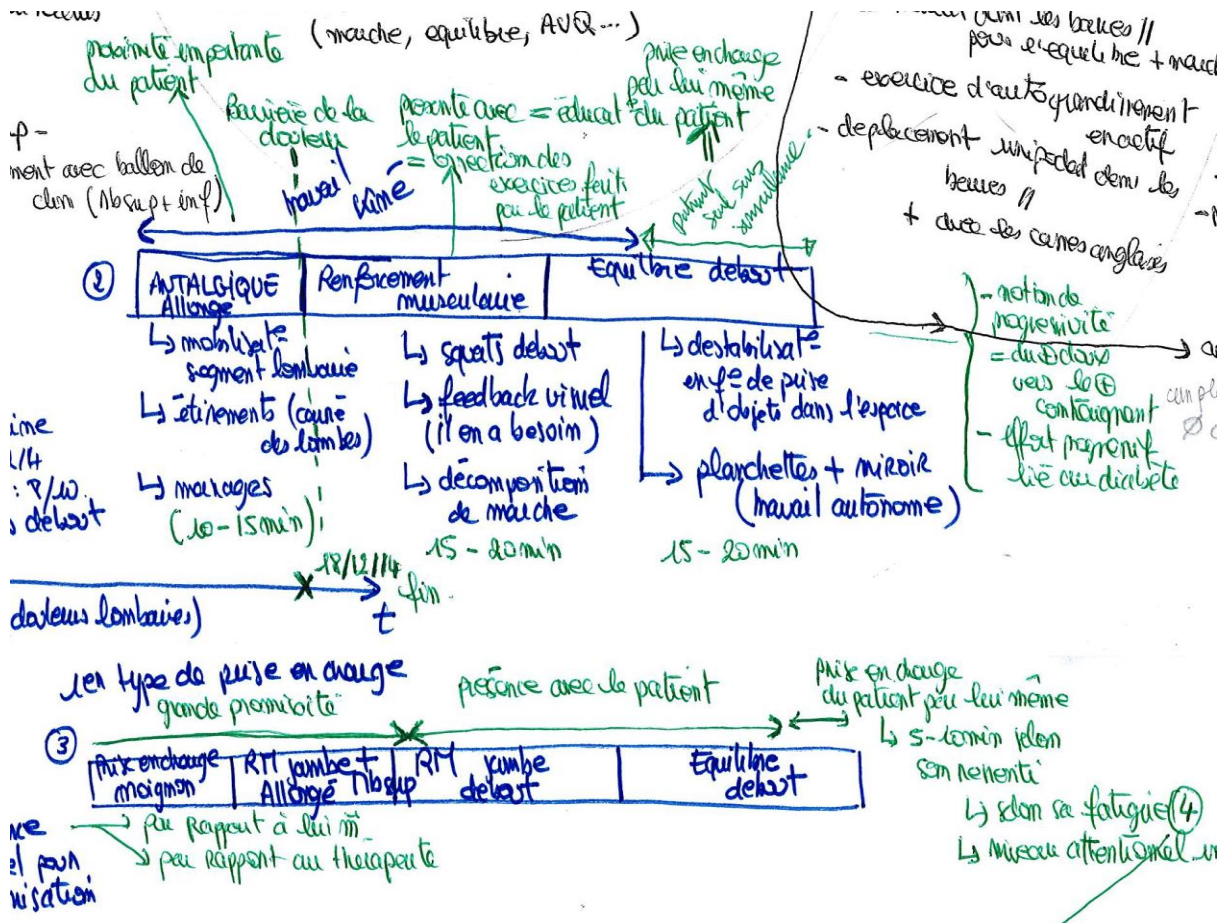 (marche, equilibre, AVQ...)
proximité importante
du patient
barrière de la
douleur
travail kiné
présente avec = éducat°
le patient
= correction des
exercices faits
par le patient
prise en charge
par lui même
du patient
patient
seul sous
surveillance
dans les barres //
pour l'equilibre + march
- exercice d'autograndissement
en actif
- deplacement unipodal dans les
barres //
+ avec les cannes anglaises
ment avec ballon de
(Mbsup + inf)
②
ANTALGIQUE
Allongé
Renforcement
musculaire
Equilibre debout
↳ mobilisat°
segment lombaire
↳ étirements (carré
des lombes)
↳ massages
(10-15min)
↳ squats debout
↳ feedback visuel
(il en a besoin)
↳ décomposition
de marche
15-20min
↳ destabilisat°
en f° de prise
d'objets dans l'espace
↳ planchettes + miroir
(travail autônome)
15-20min
- notion de
progressivité
= du ⊕ doux
vers le ⊕
contraignant
- effort progressif
lié au diabète
: 8/10
debout
18/12/14
fin.
t
douleurs lombaires)
1er type de prise en charge
grande proximité
présence avec le patient
prise en charge
du patient par lui même
↳ 5-10min selon
son ressenti
↳ selon sa fatigue ④
↳ niveau attentionnel
③
Prise en charge
moignon
RM jambe +
Allongé Mbsup
RM jambe
debout
Equilibre
debout
→ par rapport à lui m̂
→ par rapport au thérapeute